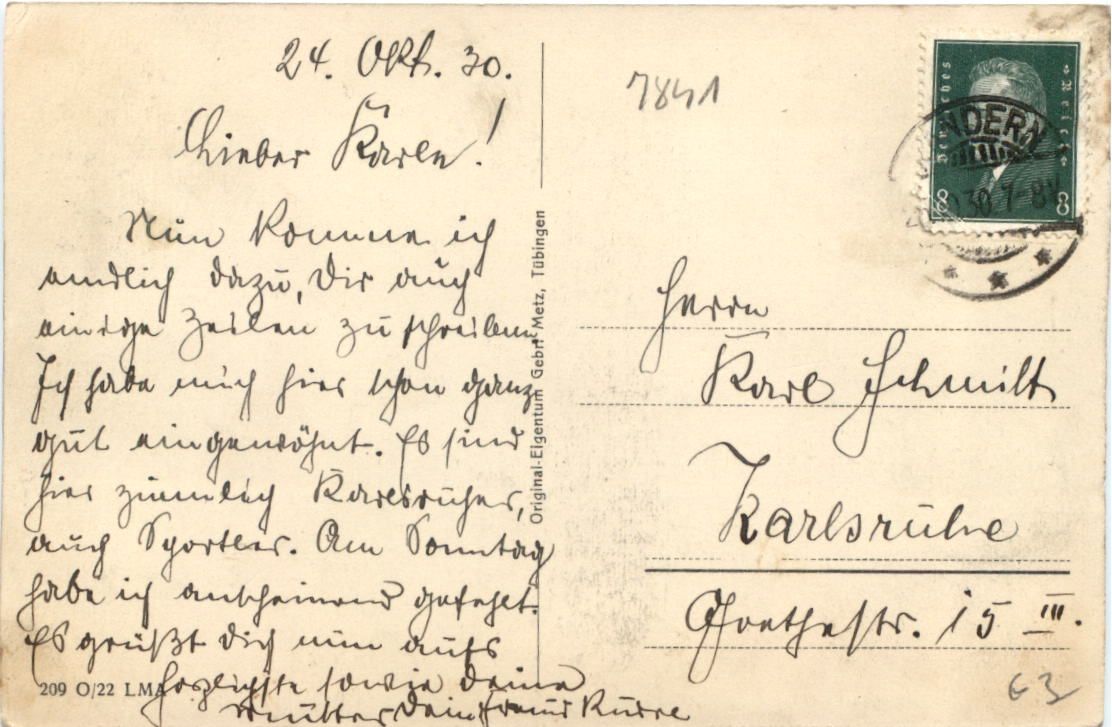 24. Okt. 30.
Lieber Karle!
Nun komme ich
endlich dazu, Dir auch
einige Zeilen zu schreiben.
Ich habe mich hier schon ganz
gut eingewöhnt. Es sind
hier ziemlich Karlsruher,
auch Sportler. Am Sonntag
habe ich anscheinend gefehlt.
Es grüßt Dich nun aufs
herzlichste sowie deine
Mutter Dein Freund
209 O/22 LMA
Original-Eigentum Gebr. Metz, Tübingen
7841
Deutsches Reich
8 8
30 7-8V
Herrn
Karl Schmitt
Karlsruhe
Goethestr. 15 III.
63